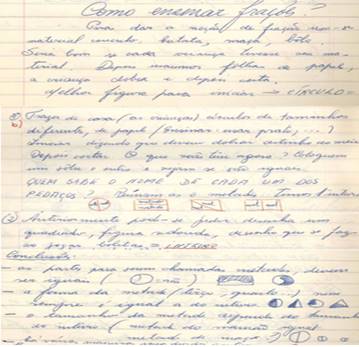 Como ensinar frações?
Para dar a noção de fração usa-se
material concreto, batata, maçã, bolo
Seria bom se cada criança tivesse seu ma-
terial. Depois usaremos folha de papel,
a criança dobra e depois corta.
Melhor figura para iniciar → CÍRCULO =
Traga de casa (as crianças) círculos de tamanhos
diferente, de papel (Ensinar: usar prato, ...?
dizendo que devem dobrar
Depois cortar. O que vocês têm agora? Coloquem
um sobre o outro e vejam se são iguais.
QUEM SABE O NOME DE CADA UM DOS
PEDAÇOS? metade
② Anteriormente pode-se pedir desenha um
quadrado, figura redonda, desenho que se
INTEIRO
Conclusões:
— as partes para serem chamadas metades, devem
ser iguais ( não)
— a forma da metade (terço, quarto...) nem
sempre é igual a do inteiro
— o tamanho da metade depende do tamanho
do inteiro (metade do mamão igual
metade da maçã?)
— há várias maneiras